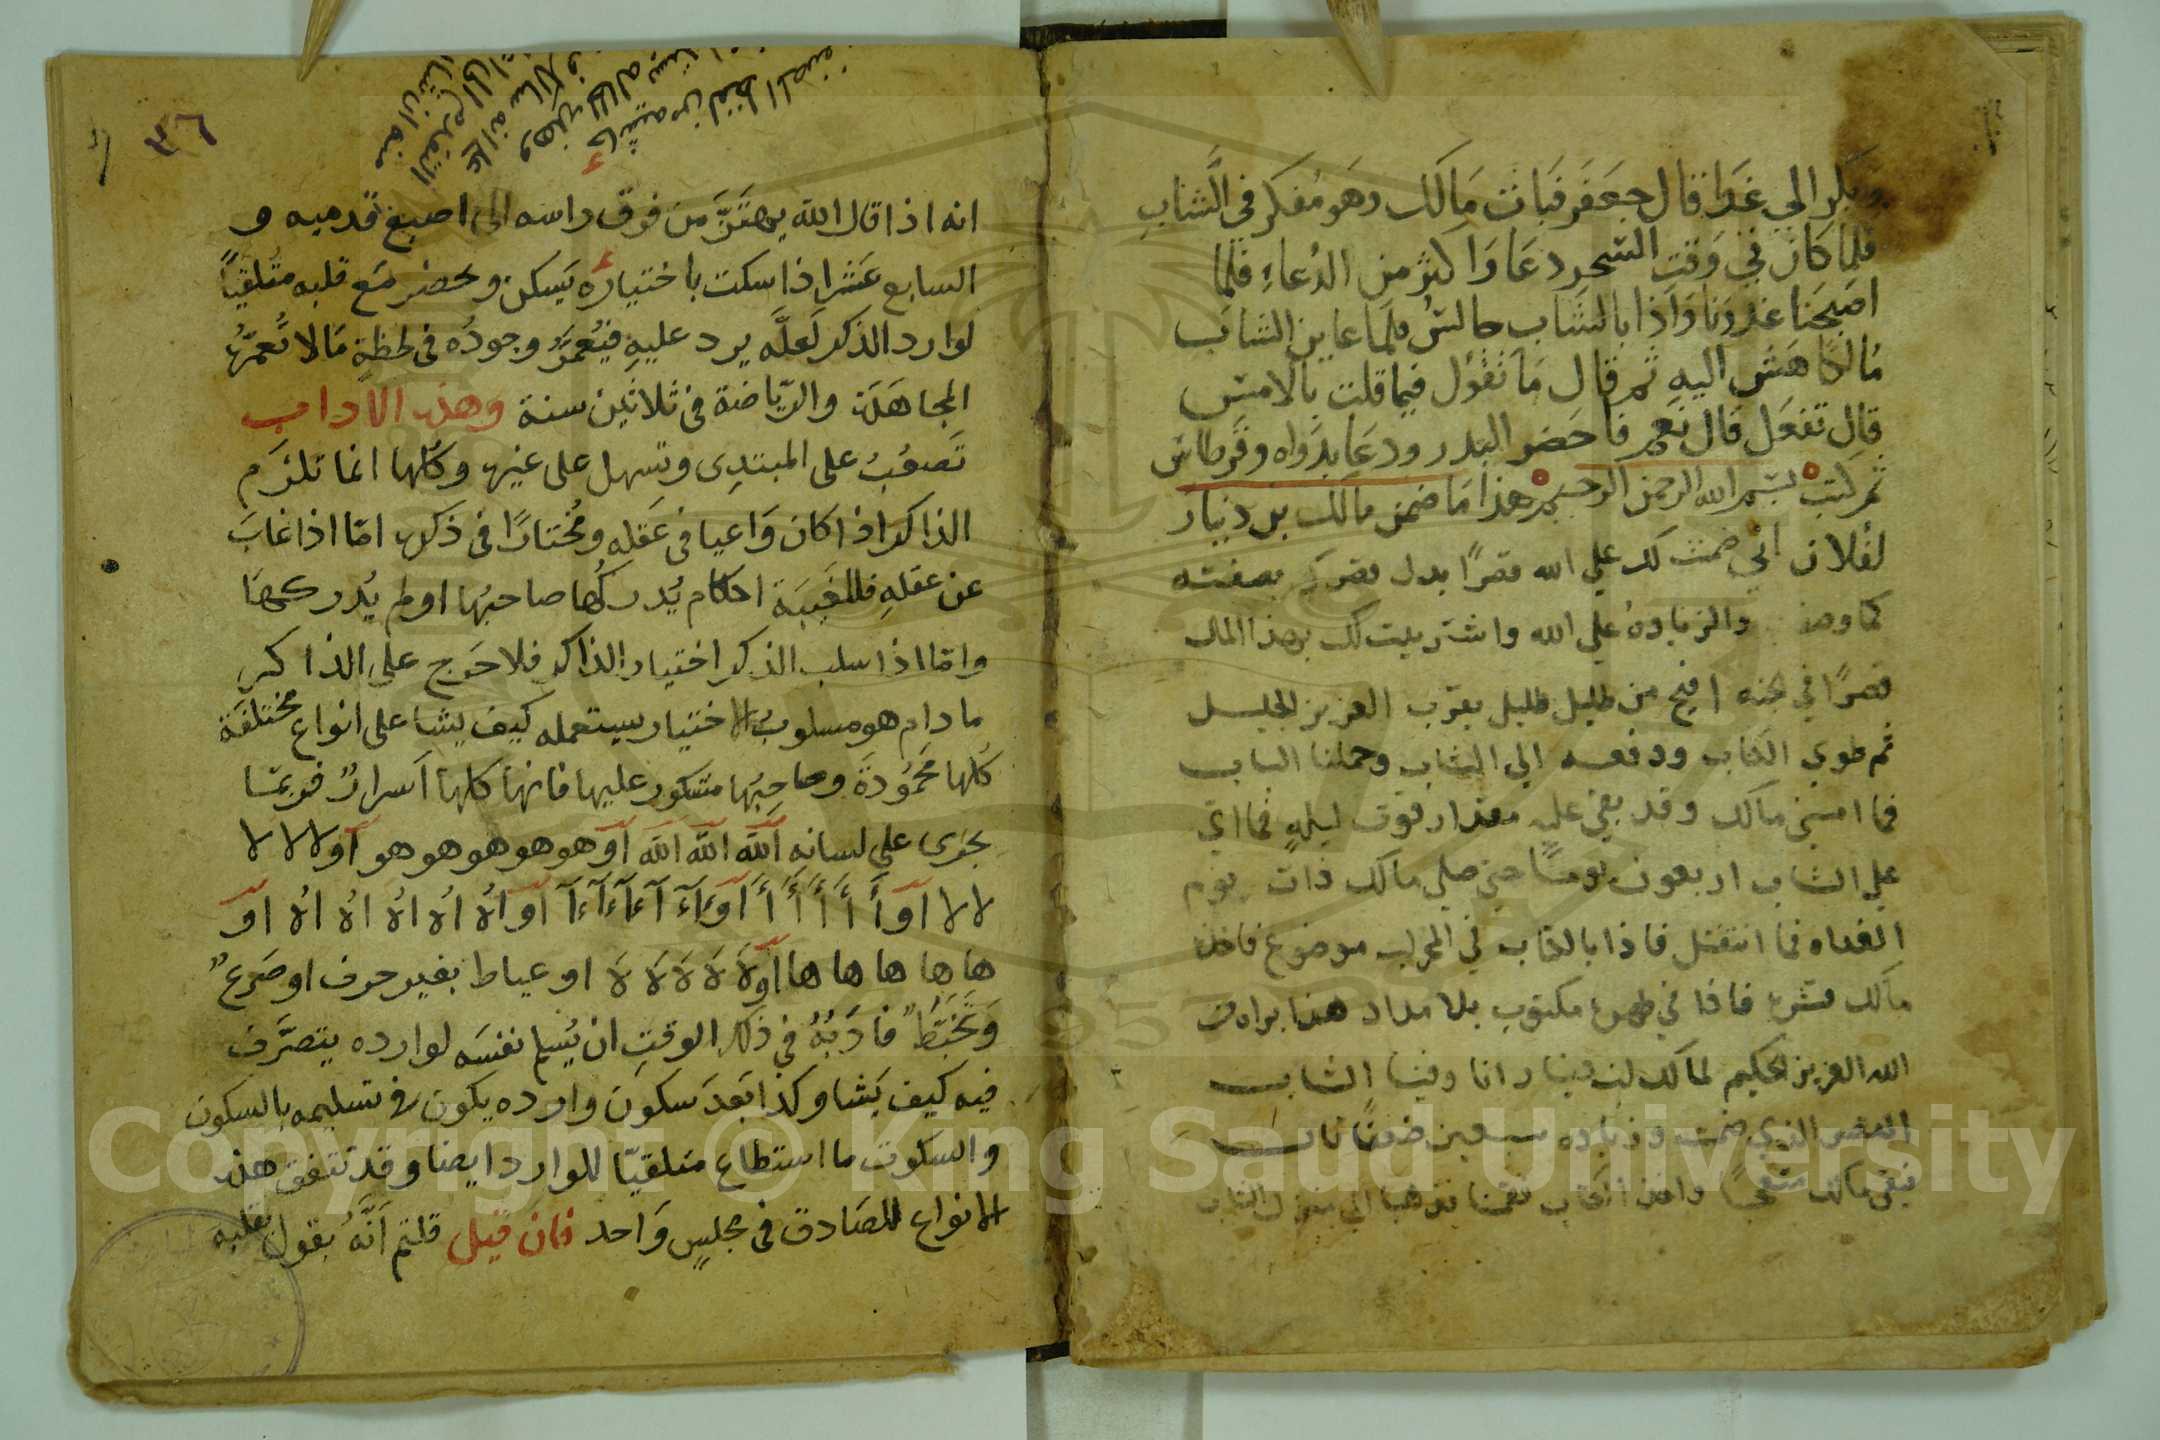 وبكر الي غدا قال جعفر فبات مالك وهو مفكر في الشاب
فلما كان في وقت السحر دعا واكثر من الدعاء فلما
اصبحنا غدونا واذا بالشاب جالس فلما عاين الشاب
مالكا هش اليه ثم قال ما تقول فيما قلت بالامس
قال تفعل قال نعم فاحضر البدر ودعا بدواه وقرطاس
ثم كتب بسم الله الرحمن الرحيم هذا ما ضمن مالك بن دينار
لفلان اني ضمنت لك علي الله قصرًا بدل قصرك بصفته
كما وصفت والزياده علي الله واشتريت لك بهذا المال
قصرًا في الجنه افيح من ظليل ظليل بقرب العزيز الجليل
ثم طوي الكتاب ودفعه الي الشاب وحملنا المال
فما امسي مالك وقد بقي عليه مقدار قوت ليله فما اتي
علي الشاب اربعون يومًا حتي صلي مالك ذات يوم
الغداه فما انتقل فاذا بالكتاب في المحراب موضوع فاخذه
مالك فاذا في ظهره مكتوب بلا مداد هذا براه من
الله العزيز الحكيم لمالك بن دينار انا وفينا الشاب
القصر الذي ضمنت وزياده سبعين ضعفًا قال
فبقي مالك متعجبًا واخذ الكتاب فقمنا فذهبنا الي منزل الشاب
حاشيه من لفظ المصنف
انه اذا قال الله يهتزّ من فوق راسه الى اصبع قدميه و
السابع عشر اذا سكت باختياره يسكن ويحضر مع قلبه متلقيًا
لوارد الذكر لعلّه يرد عليهِ فيُعمرُ وجوده في لحظةٍ مالا تُعمرُه
المجاهدة والرّياضة في ثلاثين سنة وهذه الاداب
تصعُبُ على المبتدِى وتسهل على غيره وكلها انما تلزم
الذاكر اذا كان واعيا في عقلهِ ومُختارًا في ذكره امّا اذا غابَ
عن عقلهِ فللغَيبَة احكام يُدركُها صاحبُها او لم يُدركهَا
وامّا اذا سلب الذكر اختيار الذاكر فلا حَرج على الذاكر
مادام هو مسلوبُ الاختيار يستعمله كيف يشا على انواع مختلفة
كلها محمُودة وصاحِبُها مشكور عليها فانها كلها اسرارٌ فربما
يجرى على لسانه الله الله الله الله او هو هو هو هو هو او لا لا لا
لا لا او أَ أَ أَ أَ أَ او آء آء آء آء آ او اه اه اه اه اه اه او
ها ها ها ها ها او لاَ لاَ لاَ لاَ لاَ او عياط بغير حرف او صَرعٌ
وتَخبّطٌ فادبُهُ في ذلك الوقتِ ان يُسلم نفسَه لوارده يتصرَّف
فيه كيف يشا وكذا بعد سكون وارده يكون في تسليمه بالسكون
والسكوت ما استطاع متلقيّا للوارد ايضا وقد تتفق هذه
الانواع للصادق في مجلسٍ واحد فان قيل قلتم انّهُ يقول بقلبه
Copyright © King Saud University